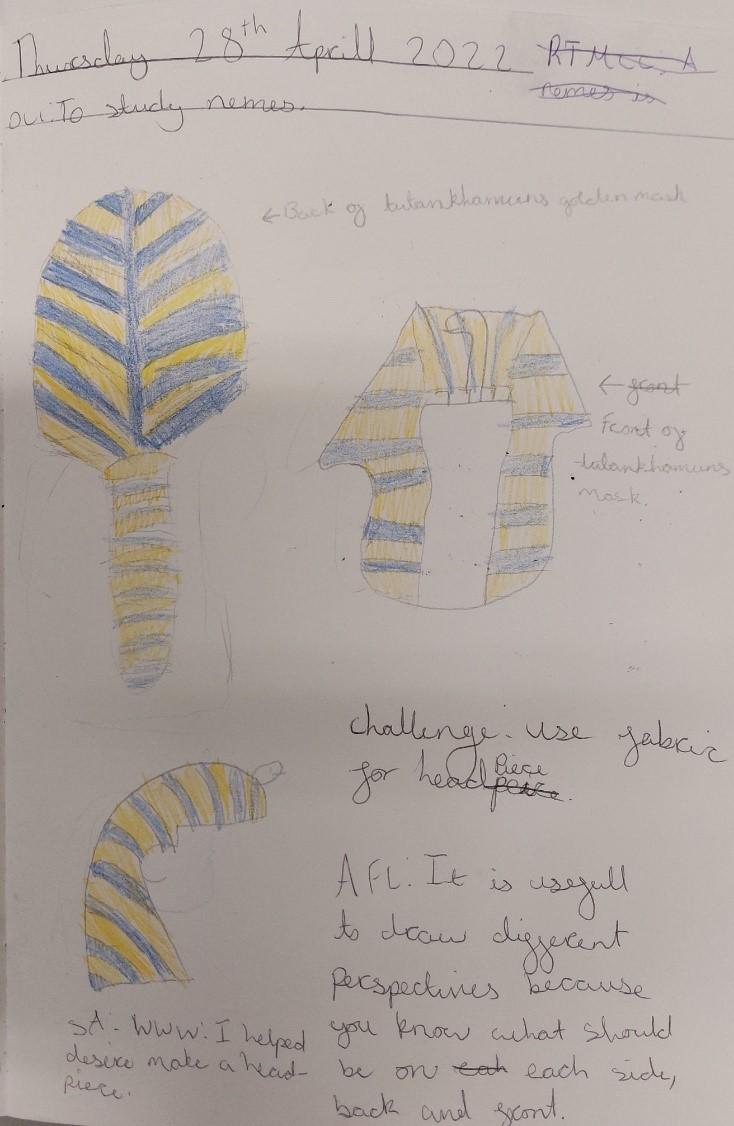 Thursday 28th Aprill 2022 RTMcc: A
nemes is
ou: To study nemes.
←Back of tutankhamuns golden mask
← front
Front of
tutankhamuns
Mask.
challenge: use fabric
for headpiece
AFL: It is usefull
to draw different
Perspectives because
you know what should
be on eah each side,
back and front.
SA: WWW: I helped
desire make a head-
piece.